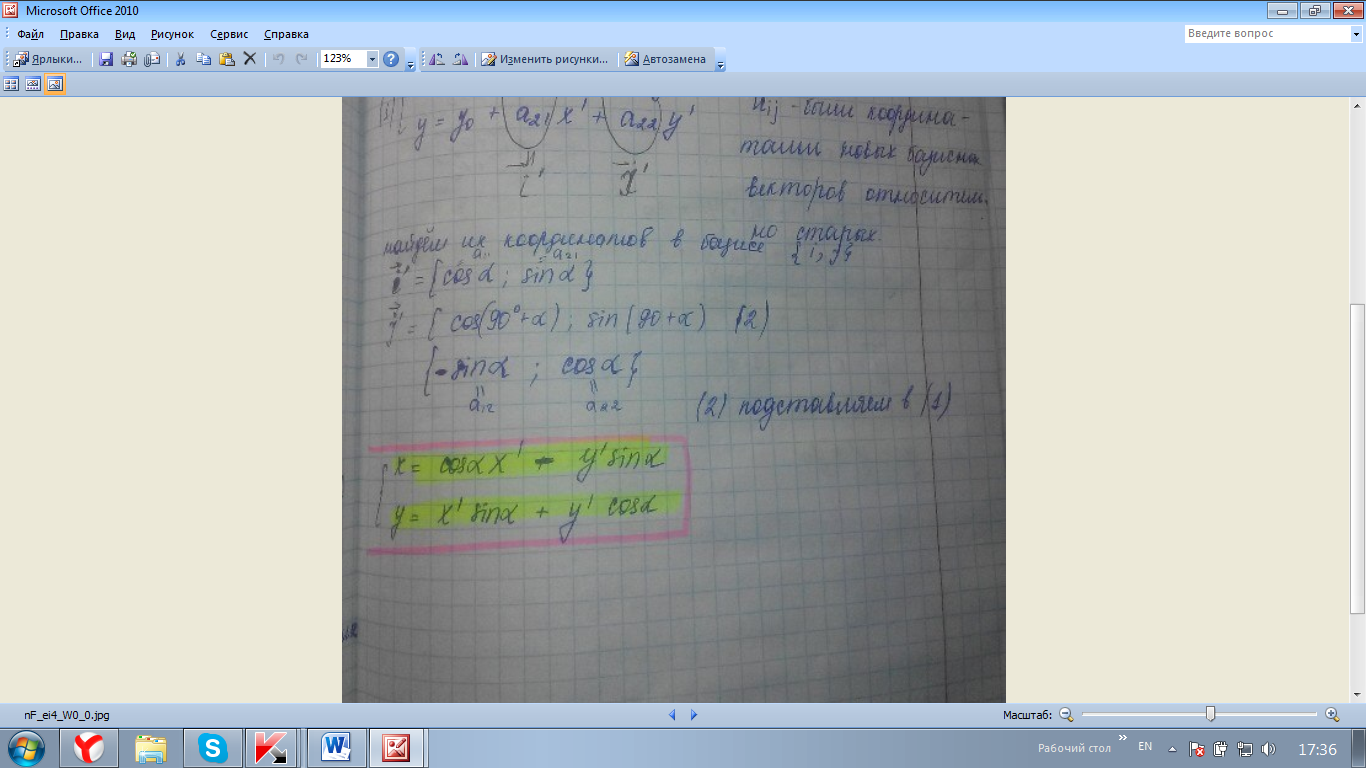 Microsoft Office 2010
Файл Правка Вид Рисунок Сервис Справка
Введите вопрос
Ярлыки... 123% Изменить рисунки... Автозамена
y = y₀ + a₂₁ x' + a₂₂ y'
ij - были координа-
тами новых базисн
векторов относитель
но старых.
найдём их координатов в базисе {i, j}
a₁₁ = a₂₁
i' = {cos α ; sin α}
j' = { cos(90°+α) ; sin (90+α) (2)
{-sin α ; cos α}
a₁₂ a₂₂
(2) подставляем в (1)
x = cosα x' - y' sinα
y = x' sinα + y' cosα
nF_ei4_W0_0.jpg
Масштаб:
Рабочий стол » EN 17:36